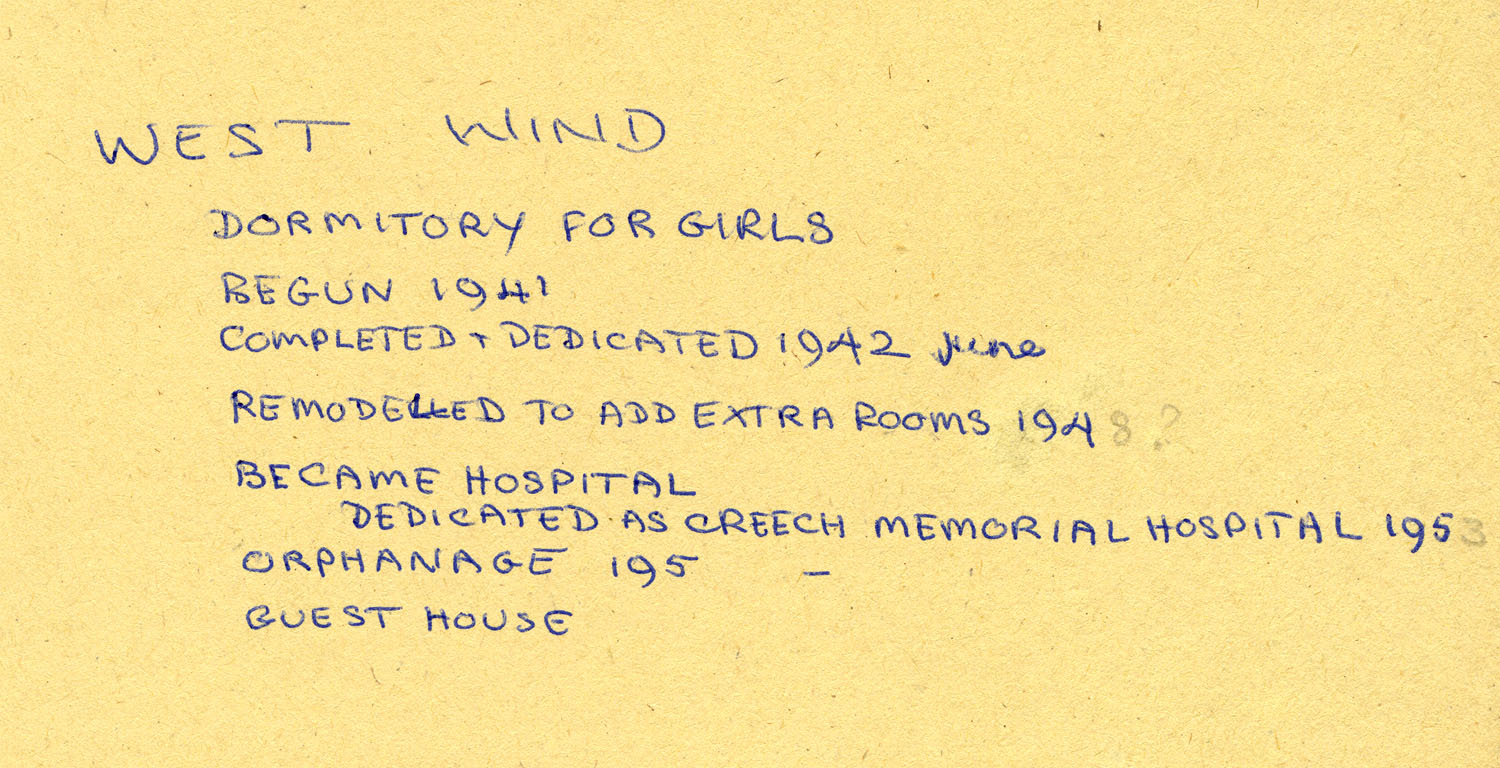 WEST WIND
DORMITORY FOR GIRLS
BEGUN 1941
COMPLETED + DEDICATED 1942 June
REMODELLED TO ADD EXTRA ROOMS 1948?
BECAME HOSPITAL
DEDICATED AS CREECH MEMORIAL HOSPITAL 1953
ORPHANAGE 195 –
GUEST HOUSE